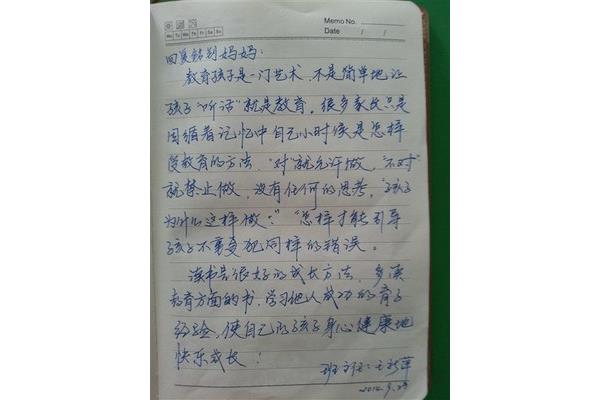 Memo No.
Mo Tu We Th Fr Sa Su
Date / /
回复铭别妈妈：
教育孩子是一门艺术，不是简单地让
孩子"听话"就是教育，很多家长只是
因循着记忆中自己小时候是怎样
受教育的方法，"对"就允许做，"不对"
就禁止做，没有任何的思考，"孩子
为什么这样做？""怎样才能引导
孩子不重复犯同样的错误。
读书是很好的成长方法，多读
教育方面的书，学习他人成功的育子
经验，使自己的孩子身心健康地
快乐成长！
班主任：王
2014.9.23